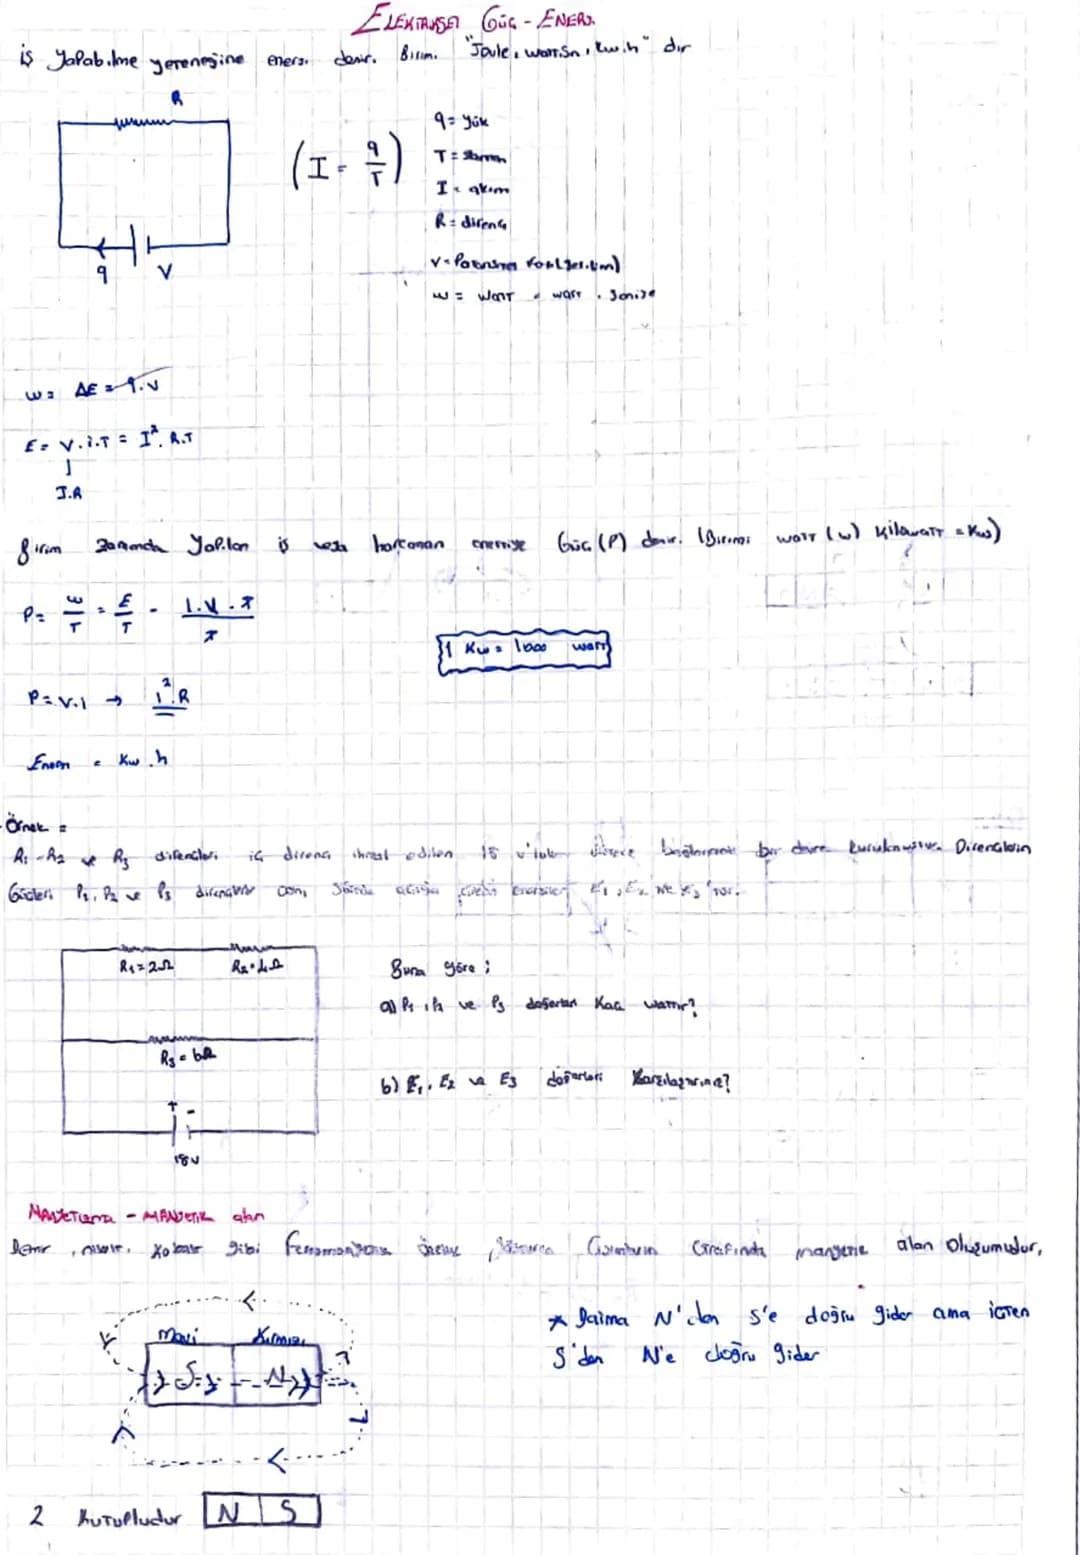 ELEKTRİKSEL GÜÇ - ENERJİ
iş yapabilme yeteneğine enerji denir. Birimi "Joule, watt.sn, kw.h" dır
R
q V
(I = q/T)
q = yük
T = zaman
I = akım
R = direnç
V = Potansiyel Fark (gerilim)
w = watt = watt . saniye
w = ΔE = q.v
E = V.i.T = I². R.T
I.R
Birim zamanda Yapılan iş veya harcanan enerjiye Güç (P) denir. (Birimi watt (w) kilowatt = Kw)
P = w/T = E/T = I.V.T/T
1 Kw = 1000 watt
P = V.I → I².R
Enerji = Kw.h
Örnek =
R1 - R2 ve R3 dirençleri iç direnci ihmal edilen 15 v'luk bir devre kurulmuştur. Dirençlerin
Güçleri P1, P2 ve P3 dirençlerin aynı sürede açığa enerjiler E1, E2 ve E3 'tür.
R1 = 2Ω R2 = 4Ω
R3 = 6Ω
+ -
18v
Buna göre ;
a) P1, P2 ve P3 değerleri Kaç wattır?
b) E1, E2 ve E3 değerleri Karşılaştırınız?
MANYETİZMA - MANYETİK alan
Demir, nikel, Kobalt gibi Ferromanyetik cisimlerin etrafında manyetik alan Oluşumudur,
Mavi Kırmızı
S N
* Daima N'den S'e doğru gider ama içten
S'den N'e doğru gider
2 Kutupludur N S